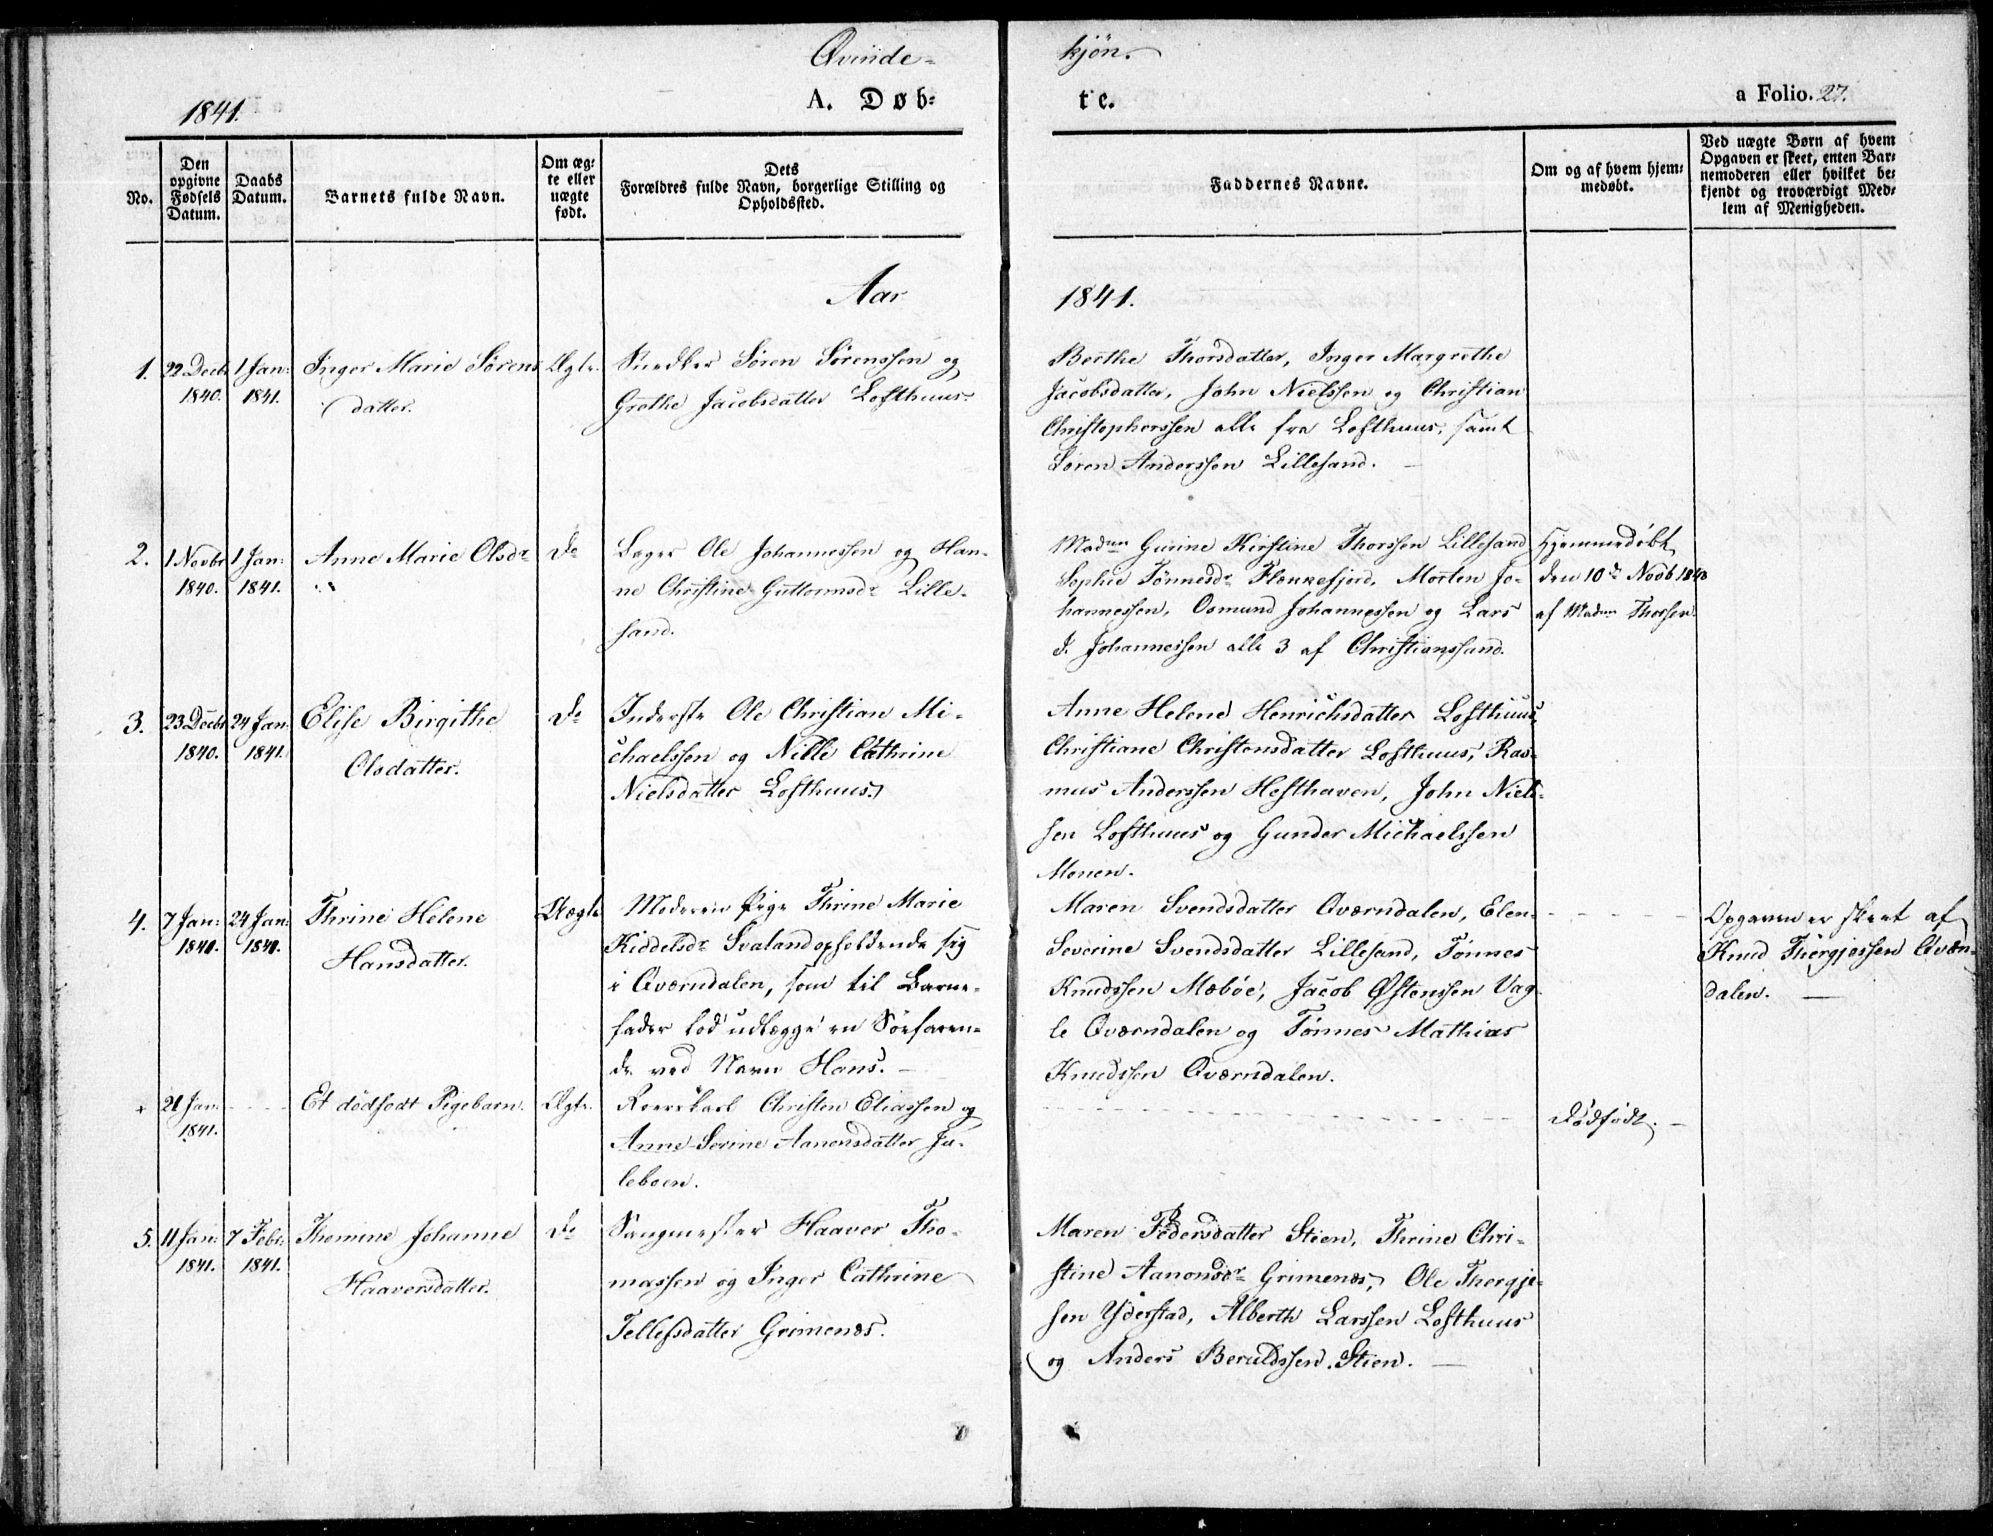 Qvinde-
kjøn.
1841.
A. Døb-
te.
a Folio. 27.
No.
Den opgivne Fødsels Datum.
Daabs Datum.
Barnets fulde Navn.
Om ægte eller uægte født.
Dets Forældres fulde Navn, borgerlige Stilling og Opholdssted.
Faddernes Navne.
Om og af hvem hjemmedøbt.
Ved uægte Børn af hvem
Opgaven er skeet, enten Bar-
nemoderen eller hvilket be-
kjendt og troværdigt Med-
lem af Menigheden.
Aar
1841.
1.
22 Decbr
1840.
1 Jan:
1841.
Inger Marie Sørens
datter.
Ægte.
Snedker Søren Sørenssen og
Grethe Jacobsdatter Lofthuus.
Berthe Thorsdatter, Inger Margrethe
Jacobsdatter, John Nielssen og Christian
Christophersen alle fra Lofthuus, samt
Søren Anderssen Lillesand.
2.
1 Novbr
1840.
1 Jan:
1841.
Anne Marie Olsdr
Do
Ole Johannessen og Han-
ne Christine Guttormsdr Lille-
sand.
Madmm Gurine Kirstine Thorssen Lillesand
Sophie Tønnesdr Morten Jo-
hannessen, Osmund Johannessen og Lars
J. Johannessen alle 3 af Christianssand.
Hjemmedøbt
den 10de Novb 1840
af Madmm Thorsen.
3.
23 Decbr
1840.
24 Jan:
1841.
Elise Birgithe
Olsdatter.
Do
Inderste Ole Christian Mi-
chaelssen og Nille Cathrine
Nielsdatter Lofthuus.
Anne Helene Henrichsdatter Lofthuus,
Christiane Christensdatter Lofthuus, Ras-
mus Anderssen Hesthaven, John Niels-
sen Lofthuus og Gunder Michaelssen
Monen.
4.
7 Jan:
1841.
24 Jan:
1841.
Thrine Helene
Hansdatter.
Uægte
Moderen Pige Thrine Marie
Kiddelsdr Svaland opholdende sig
i Qværndalen, som til Barne-
fader lod udlægge en Søefaren-
de ved Navn Hans.
Maren Svendsdatter Qværndalen, Elen
Severine Svendsdatter Lillesand, Tønnes
Knudssen Mæbøe, Jacob Østenssen Vag-
le Qværndalen og Tønnes Mathias
Knudssen Qværndalen.
Opgaven er skeet af
Knud Thergjessen Qværn-
dalen.
+
21 Jan:
1841.
Et dødfødt Pigebarn.
Ægte.
Christen Eliassen og
Anne Serine Aanonsdatter Ju-
leboen.
Dødfødt.
5.
11 Jan:
1841.
7 Febr:
1841.
Thomine Johanne
Haaversdatter.
Do
Haaver Tho-
massen og Inger Cathrine
Tellefsdatter Grimenæs.
Maren Pedersdatter Stien, Thrine Chri-
stine Aanonsdr Grimenæs, Ole Thergje-
sen Yderstad, Alberth Larssen Lofthuus
og Anders Beruldssen Stien.